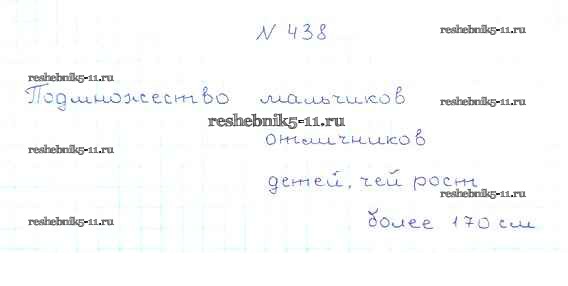 N 438
reshebnik5-11.ru
reshebnik5-11.ru
Подмножество мальчиков
reshebnik5-11.ru
reshebnik5-11.ru
отличников
reshebnik5-11.ru
детей, чей рост
reshebnik5-11.ru
более 170 см
reshebnik5-11.ru